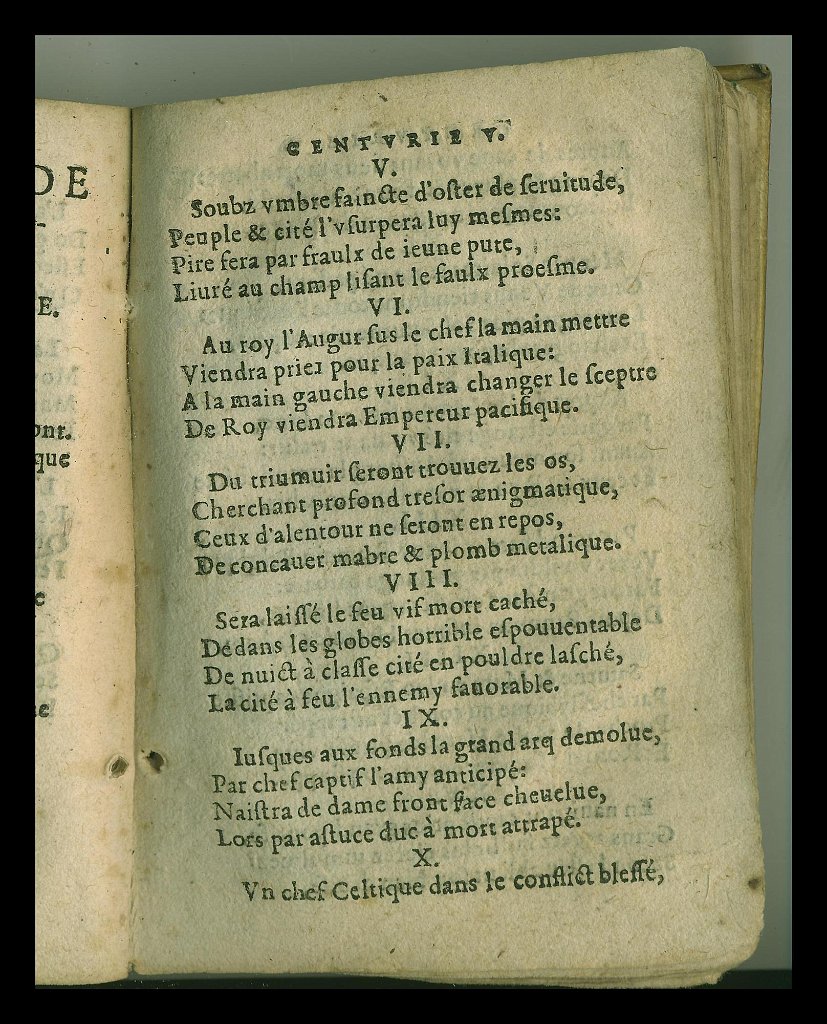 DE
E.
ont.
que
CENTVRIE V.
V.
Soubz vmbre faincte d'oſter de ſeruitude,
Peuple & cité l'vſurpera luy meſmes:
Pire fera par fraulx de ieune pute,
Liuré au champ liſant le faulx proeſme.
VI.
Au roy l'Augur ſus le chef la main mettre
Viendra prier pour la paix Italique:
A la main gauche viendra changer le ſceptre
De Roy viendra Empereur pacifique.
VII.
Du triumuir ſeront trouuez les os,
Cherchant profond treſor ænigmatique,
Ceux d'alentour ne ſeront en repos,
De concauer mabre & plomb metalique.
VIII.
Sera laiſſé le feu vif mort caché,
Dedans les globes horrible eſpouuentable
De nuict à claſſe cité en pouldre laſché,
La cité à feu l'ennemy fauorable.
IX.
Iuſques aux fonds la grand arq demolue,
Par chef captif l'amy anticipé:
Naiſtra de dame front face cheuelue,
Lors par aſtuce duc à mort attrapé.
X.
Vn chef Celtique dans le conflict bleſſé,